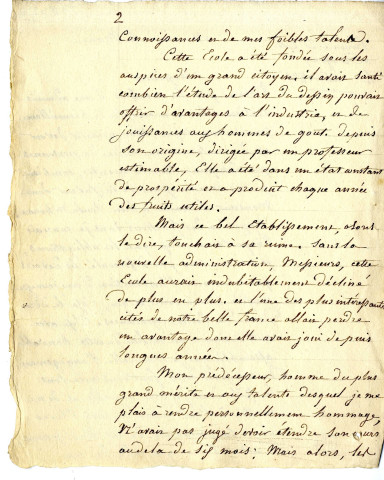 2
Connoissances et de mes foibles talents.
Cette Ecole a été fondée sous les
auspices d'un grand citoyen. il avait senti
combien l'étude de l'art du dessin pouvait
offrir d'avantages à l'industrie, et de
jouissances aux hommes de gout. depuis
son origine, dirigée par un professeur
estimable, Elle a été dans un état constant
de prospérité et a produit chaque année
des fruits utiles.
Mais ce bel Etablissement, osons
le dire, touchait à sa ruine. sans la
nouvelle administration, Messieurs, cette
Ecole aurait indubitablement décliné
de plus en plus, et l'une des plus intéressantes
cités de notre belle france allait perdre
un avantage dont elle avait joui depuis
longues années.
Mon prédécesseur, homme du plus
grand mérite et aux talents desquel je me
plais à rendre personnellement hommage,
N'avait pas jugé devoir étendre son cours
audela de six mois: Mais alors, les